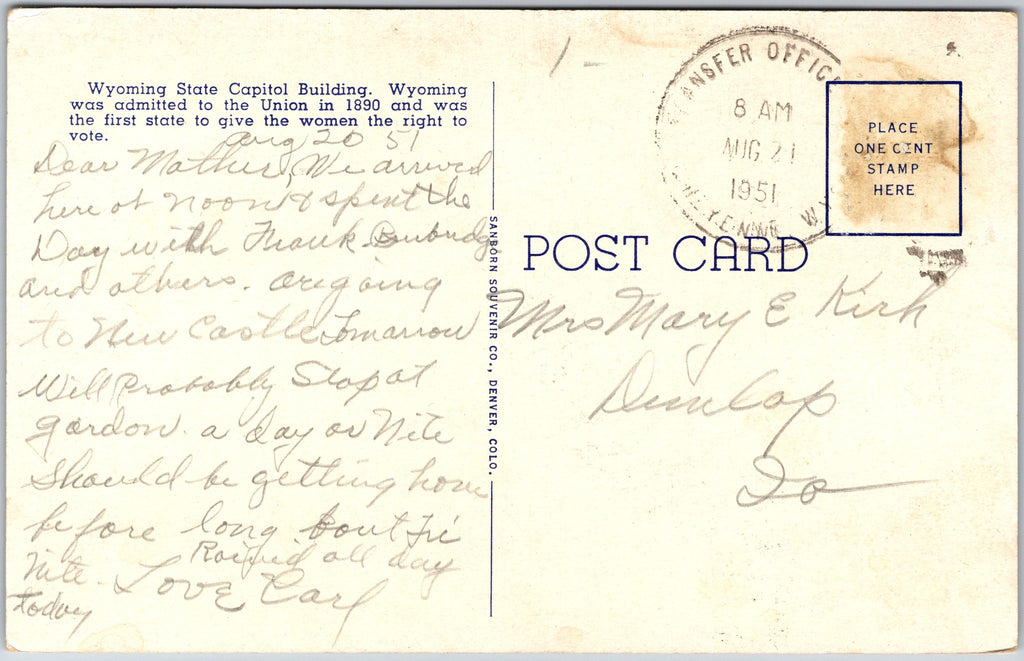 Wyoming State Capitol Building. Wyoming
was admitted to the Union in 1890 and was
the first state to give the women the right to
vote.
Aug 20 51
Dear Mother, We arrived
here at noon & spent the
Day with Frank
and others. are going
to New Castle Tomarrow
Will Probably Stop at
gordon. a day or Nite
Should be getting home
before long. bout Fri
Nite. Love Carl
Rained all day
today
SANBORN SOUVENIR CO., DENVER, COLO.
TRANSFER OFFICE
8 AM
AUG 21
1951
CHEYENNE WYO
PLACE
ONE CENT
STAMP
HERE
POST CARD
Mrs Mary E Kirk
Dunlap
Ia